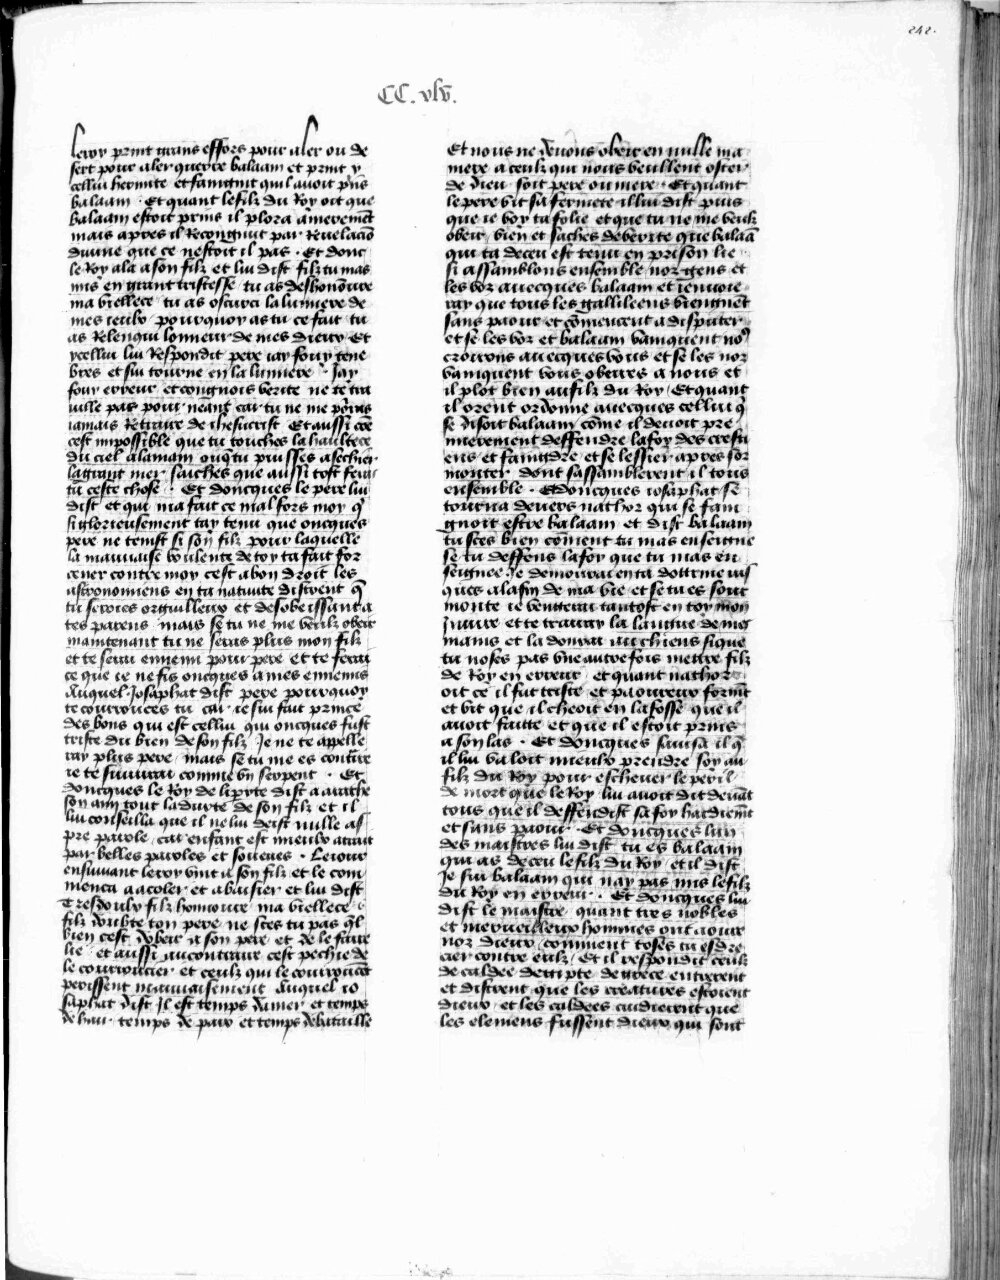 242.
CC. vlv.
leroy print grans effors pour aler ou de
sert pour aler querre balaam et print y
cellui hermite et faingnit quil avoit prins
balaam . Et quant le filz du Roy oit que
balaam estoit prins il plora amerement
mais apres il Recongnut par Revelacion
divine que ce nestoit il pas . Et donc
le Roy ala a son filz et lui dist filz tu mas
mis en grant tristesse tu as deshonoure
ma viellece tu as oscurci la lumiere de
mes ieulx pourquoy as tu ce fait tu
as Relenqui lonneur de mes dieux Et
ycellui lui Respondit pere iay fouy tene
bres et sui tourne en la lumiere . Jay
fouy erreur et congnois verite ne te tra
uille pas pour neant car tu ne me porras
iamais Retraire de ihesucrist Et aussi coe
cest impossible que tu touches la haultece
du ciel a la main ou que tu puisses asechier
la grant mer saiches que aussi tost feras
tu ceste chose . Et doncques le pere lui
dist et qui ma fait ce mal fors moy q
si glorieusement tay tenu que oncques
pere ne tenist si son filz pour laquelle
la mauvaise voulente de toy ta fait for
cener contre moy cest a bon droit les
astronomiens en ta nativite distrent q
tu seroies orguilleux et desobeissant a
tes parens mais se tu ne me veulz obeir
maintenant tu ne seras plus mon filz
et te serai ennemi pour pere et te ferai
ce que ie ne fis oncques a mes ennemis
Auquel Josaphat dist pere pourquoy
te courrouces tu car ie sui fait prince
des bons qui est cellui qui oncques fust
triste du bien de son filz Je ne te appelle
ray plus pere mais se tu me es contraire
ie te suiurai comme un serpent . Et
doncques le Roy de lipyte dist a arache
son ami tout la durte de son filz et il
lui conseilla que il ne lui deist nulle as
pre parole car enfant est mieulx atrait
par belles paroles et soueues . Le iour
ensuivant le roy vint a son filz et le com
menca a acoler et a baisier et lui dist
Tresdoulx filz honnoure ma viellece
filz doubte ton pere ne sces tu pas quel
bien cest dobeir a son pere et de le faire
lie et aussi au contraire cest pechie de
le courroucier et ceulz qui le courroucent
perissent mauvaisement Auquel io
saphat dist Il est temps damer et temps
de hair temps de paix et temps de bataille
Et nous ne devons obeir en nulle ma
niere a ceulz qui nous veullent oster
de dieu soit pere ou mere . Et quant
le pere vit sa fermete il lui dist puis
que ie voy ta folie et que tu ne me veulz
obeir vien et saches de verite que balaam
qui ta deceu est tenu en prison lie
si assamblons ensemble noz gens et
les voz avecques balaam et ienvoie
ray que tous les gallileens viengnent
sans paour et commencent a disputer
et se les voz et balaam vainquent nous
crourons avecques vous et se les noz
vainquent vous obeires a nous et
il plot bien au filz du Roy Et quant
il orent ordonne avecques cellui q
se disoit balaam come il devoit pre
mierement deffendre la foy des cresti
ens et faingdre et se lessier apres sor
monter dont sassamblerent il tous
ensemble . Et doncques iosaphat se
tourna devers nathor qui se fain
gnoit estre balaam et dist balaam
tu sces bien coment tu mas enseigne
se tu deffens la foy que tu mas en
seignee Je demourrai en ta dottrine ius
ques a la fin de ma vie et se tu es sour
monte ie vengerai tantost en toy mon
iniure et te trairay la langue de mes
mains et la donrai aux chiens si que
tu noses pas une autre fois mettre filz
de Roy en erreur et quant nathor
oit ce il fut triste et paoureux forment
et vit que il cheoit en la fosse que il
avoit faitte et que il estoit prins
a son las . Et doncques savisa il q
il lui valoit mieulx prendre soy au
filz du Roy pour eschever le peril
de mort que le Roy lui avoit dit devant
tous que il deffendist sa foy hardiement
et sans paour . Et doncques lun
des maistres lui dist tu es balaam
qui as deceu le filz du Roy et il dist
Je sui balaam qui nay pas mis le filz
du Roy en erreur . Et doncques lui
dist le maistre quant tres nobles
et merveilleux hommes ont aoure
noz dieux comment toses tu esdre
cier contre eulz Et il respondit ceulz
de caldee degipte de grece errerent
et distrent que les creatures estoient
dieux et les caldees cuidierent que
les elemens fussent dieux qui sont